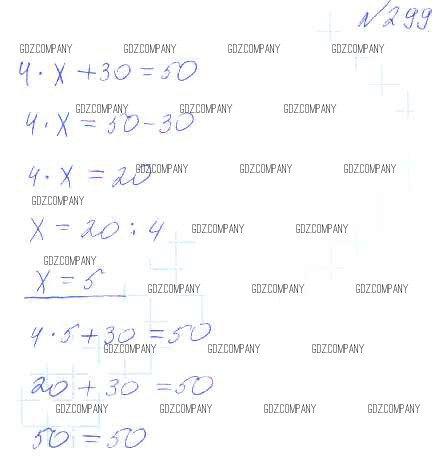 №299
GDZ.COMPANY GDZ.COMPANY GDZ.COMPANY GDZ.COMPANY
4 · x + 30 = 50
GDZ.COMPANY GDZ.COMPANY GDZ.COMPANY
4 · x = 50 - 30
GDZ.COMPANY GDZ.COMPANY GDZ.COMPANY
4 · x = 20
GDZ.COMPANY
x = 20 : 4
GDZ.COMPANY GDZ.COMPANY
GDZ.COMPANY
x = 5
GDZ.COMPANY GDZ.COMPANY GDZ.COMPANY
4 · 5 + 30 = 50
GDZ.COMPANY GDZ.COMPANY GDZ.COMPANY
20 + 30 = 50
GDZ.COMPANY GDZ.COMPANY GDZ.COMPANY GDZ.COMPANY
50 = 50